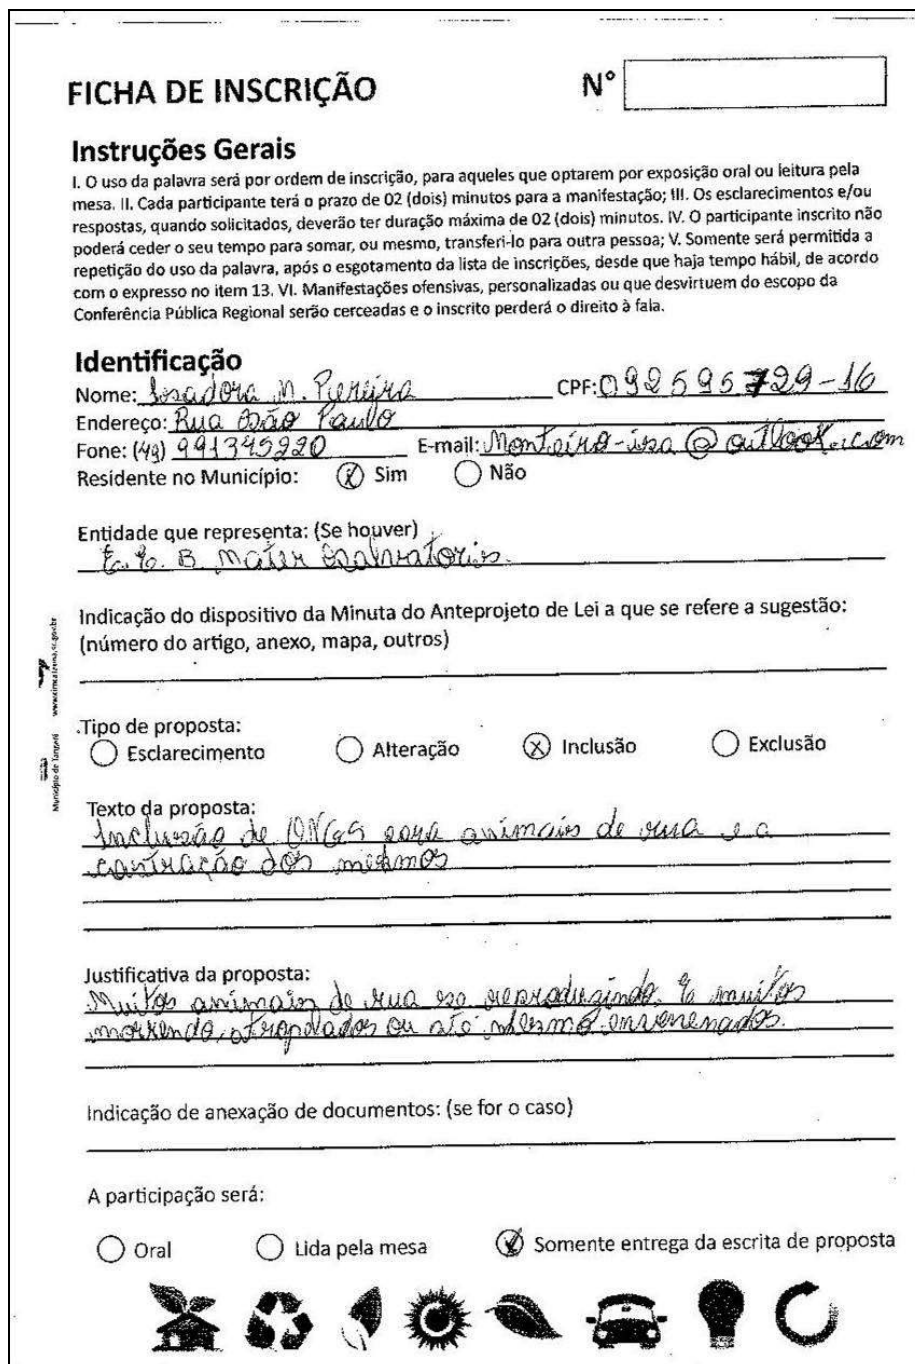 FICHA DE INSCRIÇÃO
N°
Instruções Gerais
I. O uso da palavra será por ordem de inscrição, para aqueles que optarem por exposição oral ou leitura pela
mesa. II. Cada participante terá o prazo de 02 (dois) minutos para a manifestação; III. Os esclarecimentos e/ou
respostas, quando solicitados, deverão ter duração máxima de 02 (dois) minutos. IV. O participante inscrito não
poderá ceder o seu tempo para somar, ou mesmo, transferi-lo para outra pessoa; V. Somente será permitida a
repetição do uso da palavra, após o esgotamento da lista de inscrições, desde que haja tempo hábil, de acordo
com o expresso no item 13. VI. Manifestações ofensivas, personalizadas ou que desvirtuem do escopo da
Conferência Pública Regional serão cerceadas e o inscrito perderá o direito à fala.
Identificação
Nome: Isadora M. Pereira CPF: 092595729-16
Endereço: Rua São Paulo
Fone: (49) 991345220 E-mail: Monteiro-isa@outlook.com
Residente no Município: (x) Sim Não
Entidade que representa: (Se houver)
E. E. B Mater Salvatoris.
Indicação do dispositivo da Minuta do Anteprojeto de Lei a que se refere a sugestão:
(número do artigo, anexo, mapa, outros)
Município de Tangará
Tipo de proposta:
Esclarecimento Alteração (x) Inclusão Exclusão
Texto da proposta:
Inclusão de ONGs para animais de rua e a
castração dos mesmos
Justificativa da proposta:
Muitos animais de rua se reproduzindo. E muitos
morrendo, atropelados ou até mesmo envenenados.
Indicação de anexação de documentos: (se for o caso)
A participação será:
Oral Lida pela mesa (x) Somente entrega da escrita de proposta